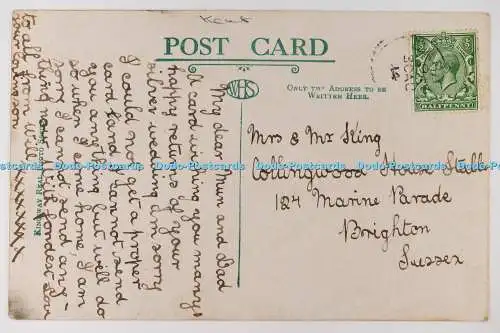 Kent
POST CARD
WHS
ONLY THE ADDRESS TO BE
WRITTEN HERE.
HALFPENNY
My dear Mum and Dad
A card wishing you many
happy returns of your
silver wedding. Im sorry
I could not get a proper
card kind I cannot send
you anything but will do
so when I come home, I am
sorry I cannot send any-
thing
to all from Will
Mrs & Mr King
Collingwood House Still
124 Marine Parade
Brighton
Sussex
KINGSWAY REAL PHOTO SERIES
Dodo-Postcards Dodo-Postcards Dodo-Postcards Dodo-Postcards Dodo-Postcards